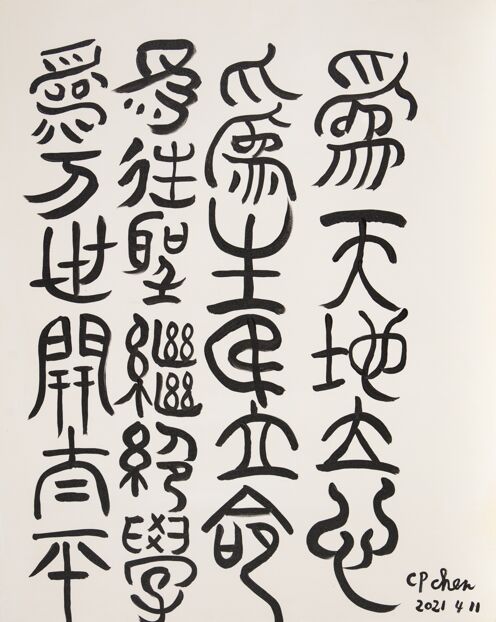 為天地立心
為生民立命
為往聖繼絕學
為万世開太平
CP chen
2021 4 11